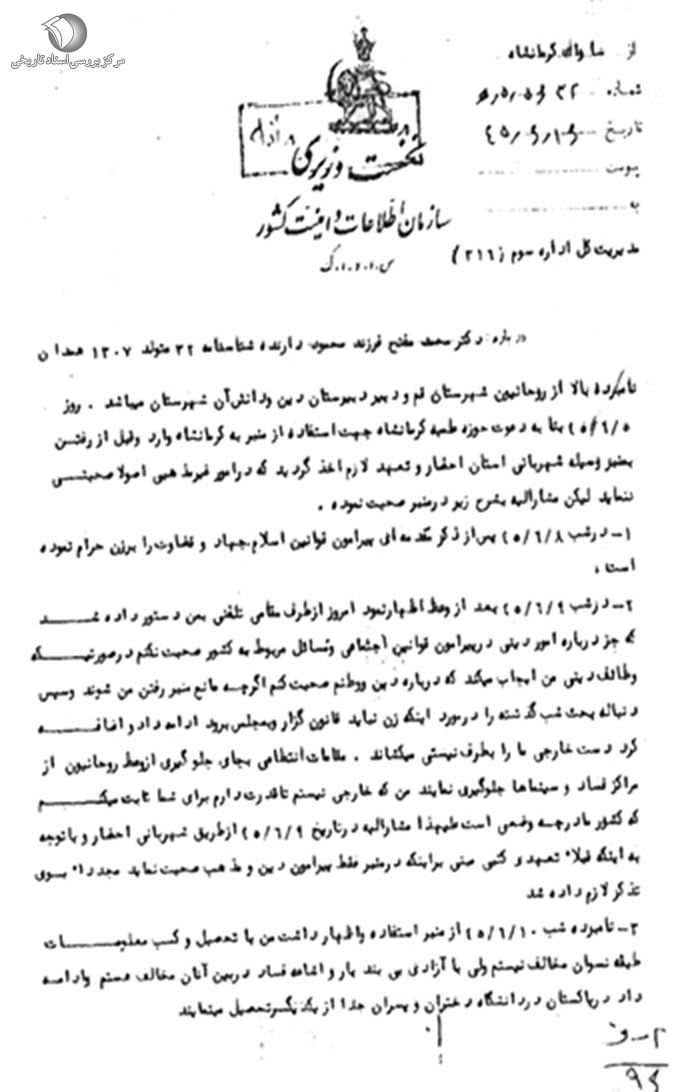 مرکز بررسی اسناد تاریخی
از ساواک کرمانشاه
شماره
تاریخ ۴۵/۶/۱۶
پیوست
به
مدیریت کل اداره سوم (۳۱۶)
نخست وزیری
سازمان اطلاعات و امنیت کشور
س.ا.و.ا.ک
درباره: دکتر محمد مفتح فرزند محمود دارنده شناسنامه ۳۲ متولد ۱۳۰۷ همدان
نامبرده بالا از روحانیون شهرستان قم و دبیر دبیرستان دین ودانش آن شهرستان میباشد . روز
۴۵/۶/۵ بنا به دعوت حوزه علمیه کرمانشاه جهت استفاده از منبر به کرمانشاه وارد وقبل از رفتن
بمنبر وسیله شهربانی استان احضار و تعهد لازم اخذ گردید که درامور غیرمذهبی اصولا صحبتی
ننماید لیکن مشارالیه بشرح زیر درمنبر صحبت نموده .
۱- درشب ۴۵/۶/۸ پس از ذکر مقدمه ای پیرامون قوانین اسلام جهاد و قضاوت را برزن حرام نموده
است .
۲- درشب ۴۵/۶/۹ بعد از وعظ اظهارنمود امروز ازطرف مقامی تلفنی بمن دستور داده شد
که جز درباره امور دینی درپیرامون قوانین اجتماعی ومسائل مربوط به کشور صحبت نکنم درصورتیکه
وظائف دینی من ایجاب میکند که درباره دین ووطنم صحبت کنم اگرچه مانع منبر رفتن من شوند وسپس
دنباله بحث شب گذشته را درمورد اینکه زن نباید قانون گزار وبمجلس برود ادامه داد و اضافه
کرد دست خارجی ما را بطرف نیستی میکشاند . مقامات انتظامی بجای جلوگیری ازوعظ روحانیون از
مراکز فساد و سینماها جلوگیری نمایند من که خارجی نیستم تاقدرت دارم برای شما ثابت میکنم
که کشور مادرچه وضعی است علیهذا مشارالیه درتاریخ ۴۵/۶/۹ ازطریق شهربانی احضار و باتوجه
به اینکه قبلا" تعهدی کتبی مبنی براینکه درمنبر فقط پیرامون دین و مذهب صحبت نماید مجددا" بوی
تذکر لازم داده شد
۳- نامبرده شب ۴۵/۶/۱۰ از منبر استفاده واظهار داشت من با تحصیل و کسب معلومات
طبقه نسوان مخالف نیستم ولی با آزادی بی بند بار و اشاعه فساد دربین آنان مخالف هستم وادامه
داد درپاکستان دردانشگاه دختران و پسران جدا از یکدیگر تحصیل مینمایند